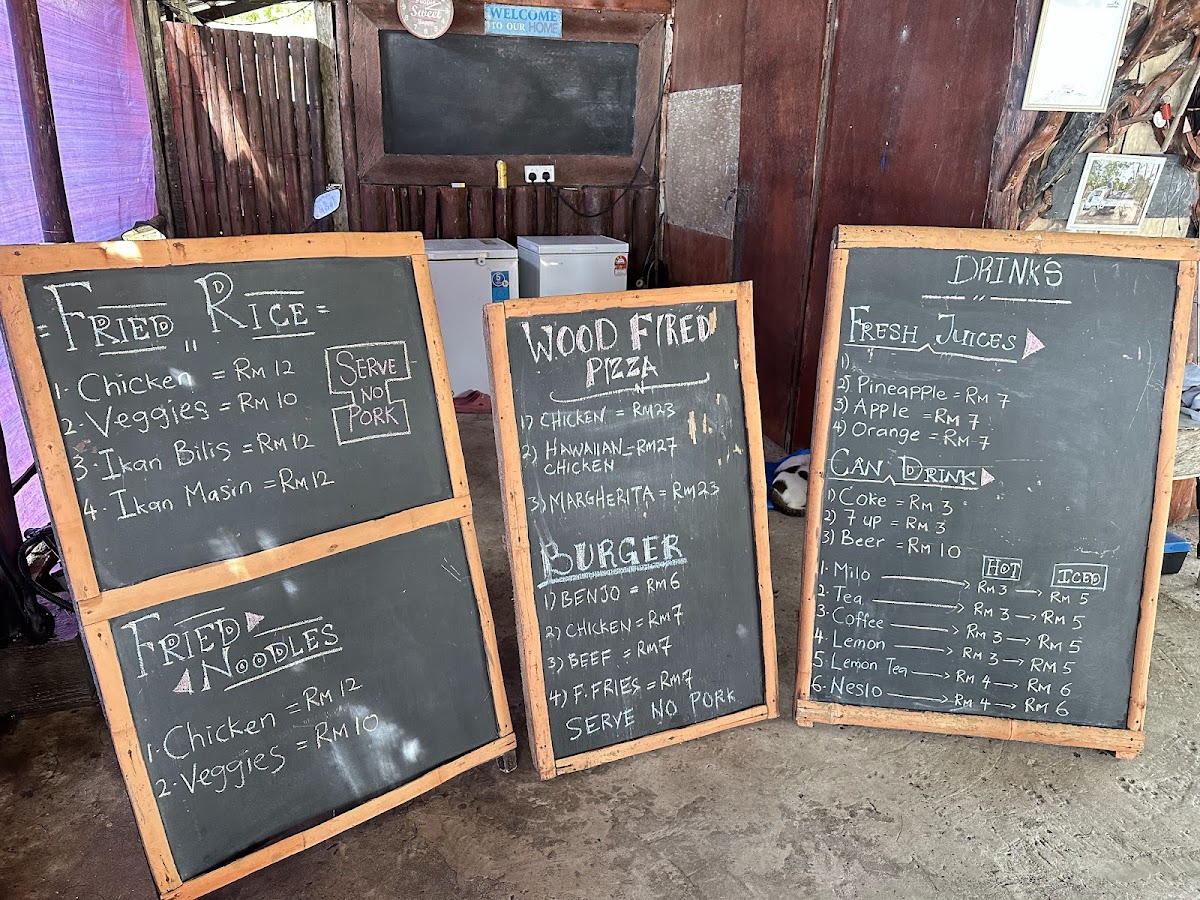 Sweet
WELCOME
TO OUR HOME
= FRIED RICE =
1. Chicken = RM 12
2. Veggies = RM 10
3. Ikan Bilis = RM 12
4. Ikan Masin = RM 12
SERVE
NO
PORK
FRIED
NOODLES
1. Chicken = RM 12
2. Veggies = RM 10
WOOD FIRED
PIZZA
1) CHICKEN = RM23
2) HAWAIIAN = RM27
CHICKEN
3) MARGHERITA = RM23
BURGER
1) BENJO = RM6
2) CHICKEN = RM7
3) BEEF = RM7
4) F.FRIES = RM7
SERVE NO PORK
DRINKS
FRESH JUICES
1)
2) Pineapple = RM 7
3) Apple = RM 7
4) Orange = RM 7
CAN DRINK
1) Coke = RM 3
2) 7 up = RM 3
3) Beer = RM 10
HOT ICED
1. Milo → RM 3 → RM 5
2. Tea → RM 3 → RM 5
3. Coffee → RM 3 → RM 5
4. Lemon → RM 3 → RM 5
5. Lemon Tea → RM 4 → RM 6
6. Neslo → RM 4 → RM 6